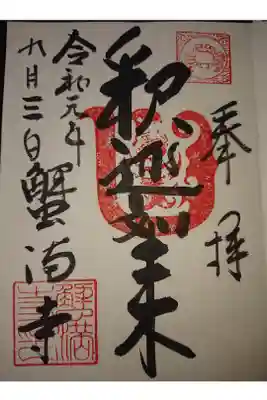 奉拝
釈迦如来
令和元年
九月三日
蟹満寺
蟹満寺